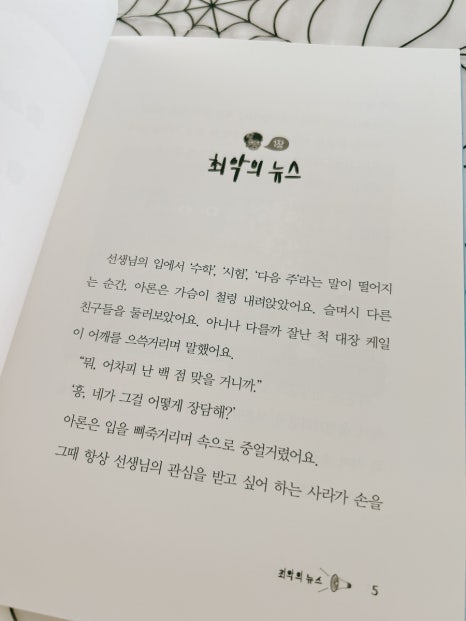 1장
최악의 뉴스
선생님의 입에서 ‘수학’, ‘시험’, ‘다음 주’라는 말이 떨어지
는 순간, 아론은 가슴이 철렁 내려앉았어요. 슬며시 다른
친구들을 둘러보았어요. 아니나 다를까 잘난 척 대장 케일
이 어깨를 으쓱거리며 말했어요.
“뭐, 어차피 난 백 점 맞을 거니까.”
‘흥, 네가 그걸 어떻게 장담해?’
아론은 입을 삐죽거리며 속으로 중얼거렸어요.
그때 항상 선생님의 관심을 받고 싶어 하는 사라가 손을
최악의 뉴스
5